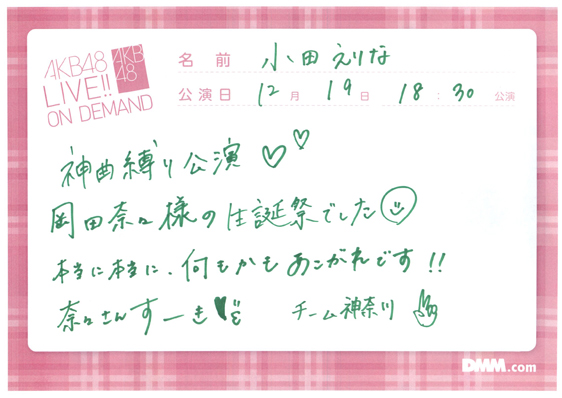 AKB48
LIVE!!
ON DEMAND
AKB
48
名前 小田えりな
公演日 12月19日 18:30 公演
神曲縛り公演♡♡
岡田奈々様の生誕祭でした
本当に本当に、何もかもあこがれです!!
奈々さんすーき
チーム神奈川
DMM.com